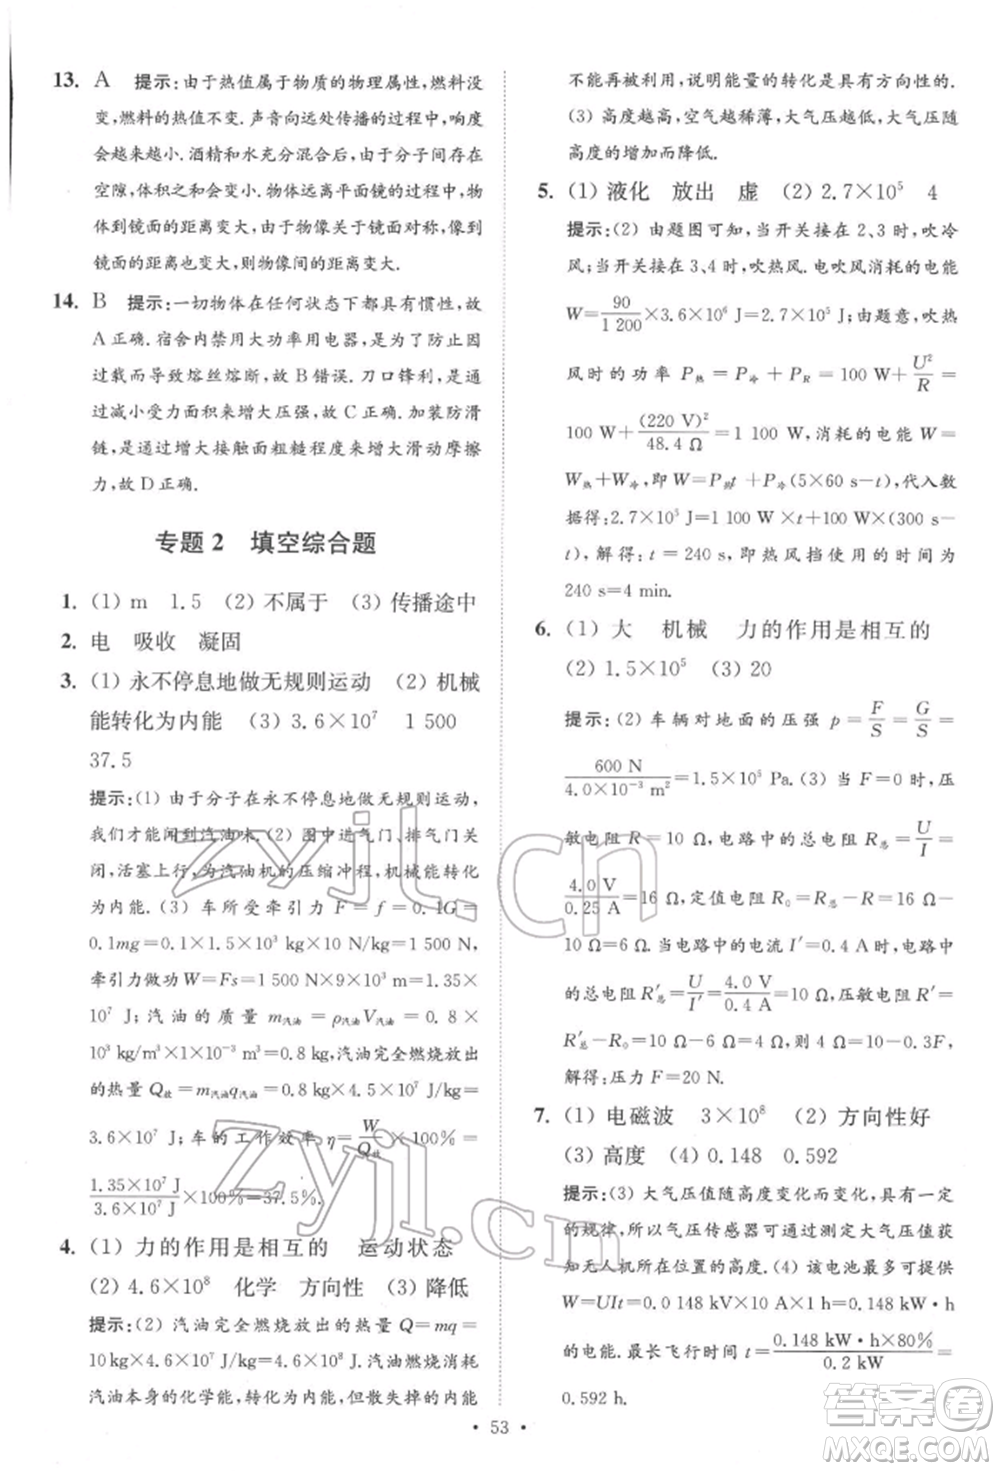 13. A 提示:由于热值属于物质的物理属性,燃料没
变,燃料的热值不变.声音向远处传播的过程中,响度
会越来越小.酒精和水充分混合后,由于分子间存在
空隙,体积之和会变小.物体远离平面镜的过程中,物
体到镜面的距离变大,由于物像关于镜面对称,故像
到镜面的距离也变大,但是像的大小不变.
14. B 提示:一切物体在任何状态下都具有惯性,故
A正确.宿舍内禁用大功率用电器,是为了防止因
过载而导致熔丝熔断,故B错误.刀口锋利,是通
过减小受力面积来增大压强,故C正确.加装防滑
链,是通过增大接触面粗糙程度来增大滑动摩擦
力,故D正确.
专题2 填空综合题
1. (1) m 1.5 (2) 不属于 (3) 传播途中
2. 电 吸收 凝固
3. (1) 永不停息地做无规则运动 (2) 机械
能转化为内能 (3) 3.6×10⁷ 1 500
37.5
提示:(1) 由于分子在永不停息地做无规则运动,
我们才能闻到汽油味.(2) 图中进气门、排气门关
闭,活塞上行,为汽油机的压缩冲程,机械能转化
为内能.(3) 车所受牵引力 F = f = 0.1G =
0.1mg=0.1×1.5×10³ kg×10 N/kg=1 500 N,
牵引力做功W=Fs=1 500 N×9×10³ m=1.35×
10⁷ J;汽油的质量 m汽油=ρ汽油V汽油=0.8×
10³ kg/m³×1×10⁻³ m³=0.8 kg,汽油完全燃烧放出
的热量Q放=m汽油q汽油=0.8 kg×4.5×10⁷ J/kg=
3.6×10⁷ J;车的工作效率η=W/Q放×100%=
1.35×10⁷ J/3.6×10⁷ J×100%=37.5%.
4. (1) 力的作用是相互的 运动状态
(2) 4.6×10⁸ 化学 方向性 (3) 降低
提示:(2) 汽油完全燃烧放出的热量Q=mq=
10 kg×4.6×10⁷ J/kg=4.6×10⁸ J.汽油燃烧消耗
汽油本身的化学能,转化为内能,但散失掉的内能
不能再被利用,说明能量的转化是具有方向性的.
(3) 高度越高,空气越稀薄,大气压强随
高度的增加而降低.
5. (1) 液化 放出 虚 (2) 2.7×10⁵ 4
提示:(2) 由题图可知,当开关接在2、3时,吹冷
风;当开关接在3、4时,吹热风.电吹风消耗的电能
W=90/1 200×3.6×10⁶ J=2.7×10⁵ J;由题意,吹热
风时的功率 P热=P冷+P_R=100 W+U²/R=
100 W+(220 V)²/48.4 Ω=1 100 W,消耗的电能 W=
W热+W冷,故W=P热t+P冷(5×60 s-t),代入数
据得:2.7×10⁵ J=1 100 W×t+100 W×(300 s-
t),解得:t=240 s,即热风挡使用的时间为
240 s=4 min.
6. (1) 大 机械 力的作用是相互的
(2) 1.5×10⁵ (3) 20
提示:(2) 车辆对地面的压强 p=F/S=G/S=
600 N/4.0×10⁻³ m²=1.5×10⁵ Pa.(3) 当F=0时,压
敏电阻R=10 Ω,电路中的总电阻R总=U/I=
4.0 V/0.25 A=16 Ω,定值电阻R₀=R总-R=16 Ω-
10 Ω=6 Ω.当电路中的电流I′=0.4 A时,电路中
的总电阻R′总=U/I′=4.0 V/0.4 A=10 Ω,压敏电阻R′=
R′总-R₀=10 Ω-6 Ω=4 Ω,则
解得:压力F=20 N.
7. (1) 电磁波 3×10⁸ (2) 方向性好
(3) 高度 (4) 0.148 0.592
提示:(3) 大气压值随高度变化而变化,有一定
的规律,所以气压传感器可以通过测定大气压值
获知无人机所处位置的高度.(4) 该电池充满电
W=UIt=0.0 148 kV×10 A×1 h=0.148 kW·h
的电能.最长飞行时间t=0.148 kW·h×80%/0.2 kW=
0.592 h.
zyjl.cn
zyjl.cn
答案圈
MXQE.COM
· 53 ·